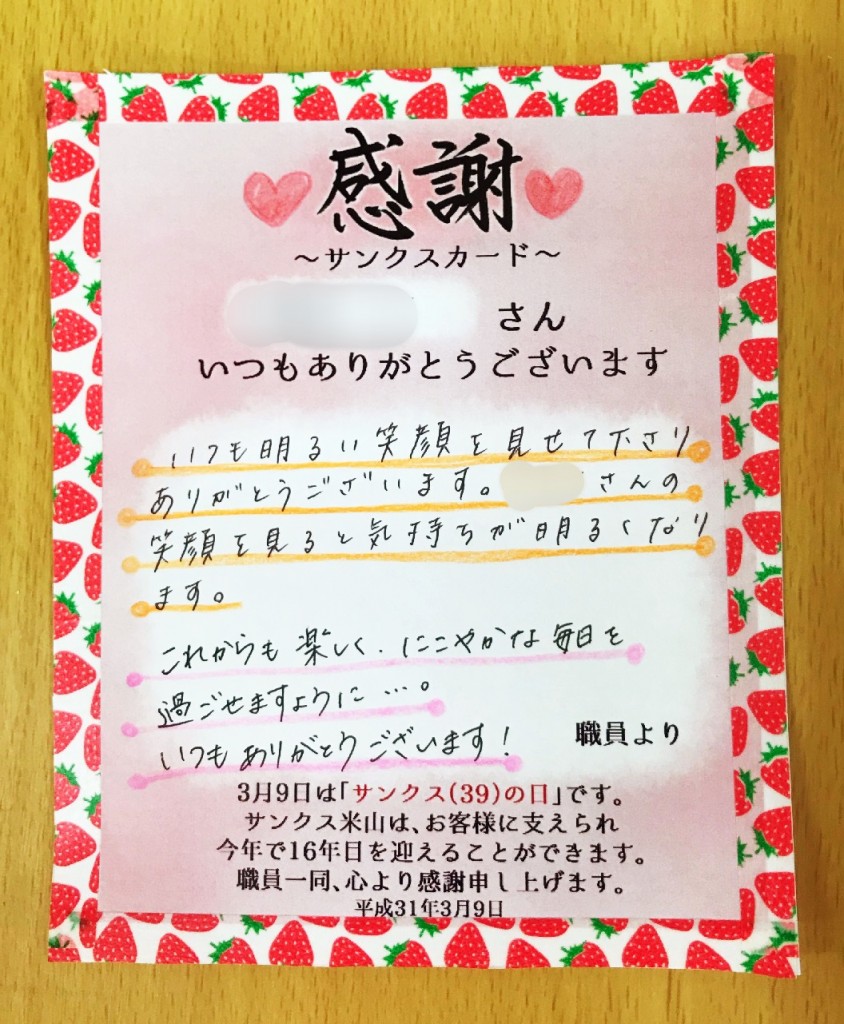 感謝
～サンクスカード～
さん
いつもありがとうございます
いつも明るい笑顔を見せて下さり
ありがとうございます。 さんの
笑顔を見ると気持ちが明るくなり
ます。
これからも楽しく、にこやかな毎日を
過ごせますように…。
いつもありがとうございます！
職員より
3月9日は「サンクス(39)の日」です。
サンクス米山は、お客様に支えられ
今年で16年目を迎えることができます。
職員一同、心より感謝申し上げます。
平成31年3月9日